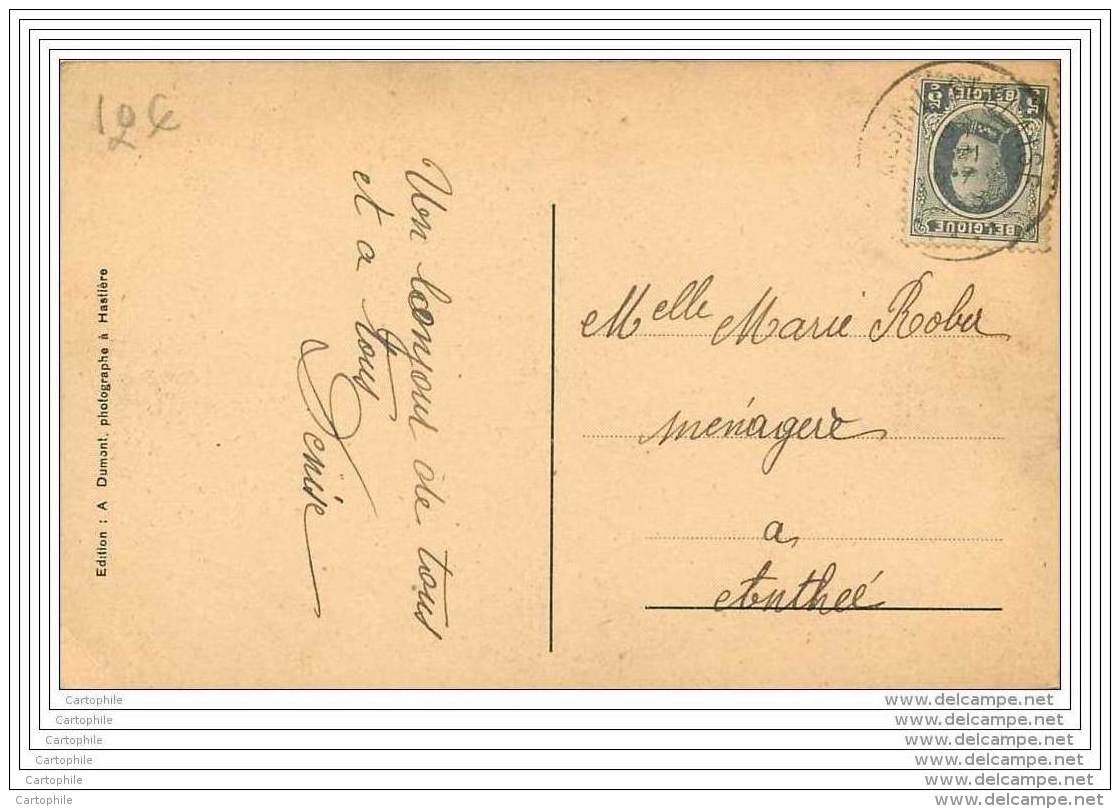 12€
Un bonjour de tous
et a tous
Denise
Edition : A Dumont, photographe à Hastière
BELGIQUE
BELGIE
Melle Marie Rober
ménagère
a
Anthée
Cartophile
www.delcampe.net
Cartophile
www.delcampe.net
Cartophile
www.delcampe.net
Cartophile
www.delcampe.net
Cartophile
www.delcampe.net
Cartophile
www.delcampe.net